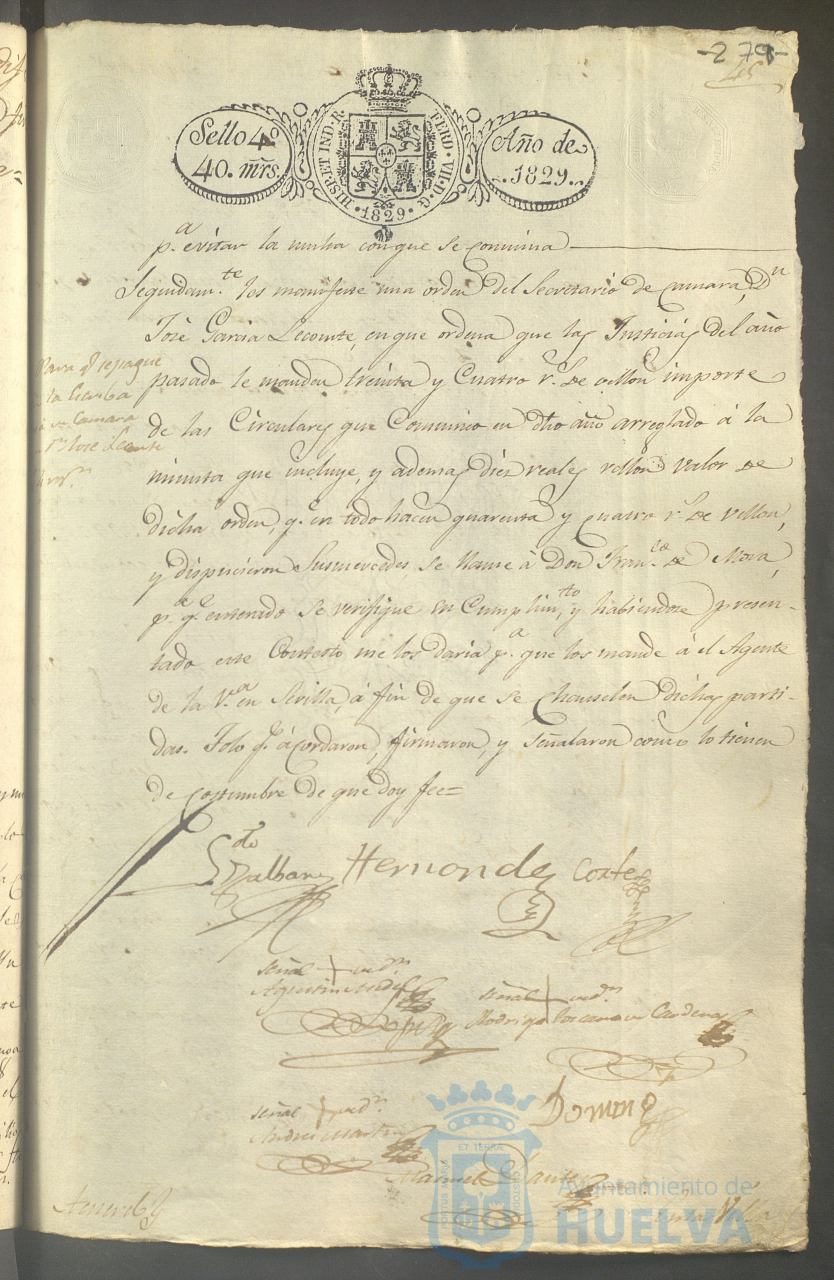 -279-
45
Sello 4º
40. mrs.
HISP. ET IND. R. FERD. VII. D. G.
1829
Año de
1829.
p.a evitar la multa con que se conmina
Seguidam.te les manifesté una orden del Secretario de Camara, Dn
José Garcia Lecomte, en que ordena que las Justicias del año
pasado le manden treinta y cuatro r.s de vellon importe
de las Circulares que Comunico en dho año arreglado á la
minuta que incluye, y ademas dies reales vellon valor de
dicha orden, q.e en todo hacen quarenta y cuatro r.s de vellon,
y dispusieron Susmercedes se llame á Don Fran.co de Mora,
p.a q.e enterado se verifique su Cumplim.to, y habiendose presen-
tado este Contestó me los daria p.a que los mande á el Agente
de la V.a en Sevilla, á fin de que se chanselen dichas parti-
das. Todo q.e acordaron, firmaron, y señalaron como lo tienen
de costumbre de que doy fee=
Para q.e se pague
la
Camara
D.n José Lecomte
Hernandez Cortes
señal + de
Agustin
señal + de
Rodrigo Toscano Cardenas
señal + de
Andres Martin
Doming
Manuel
Acuerdo
ET TERRAE
Ayuntamiento de
HUELVA